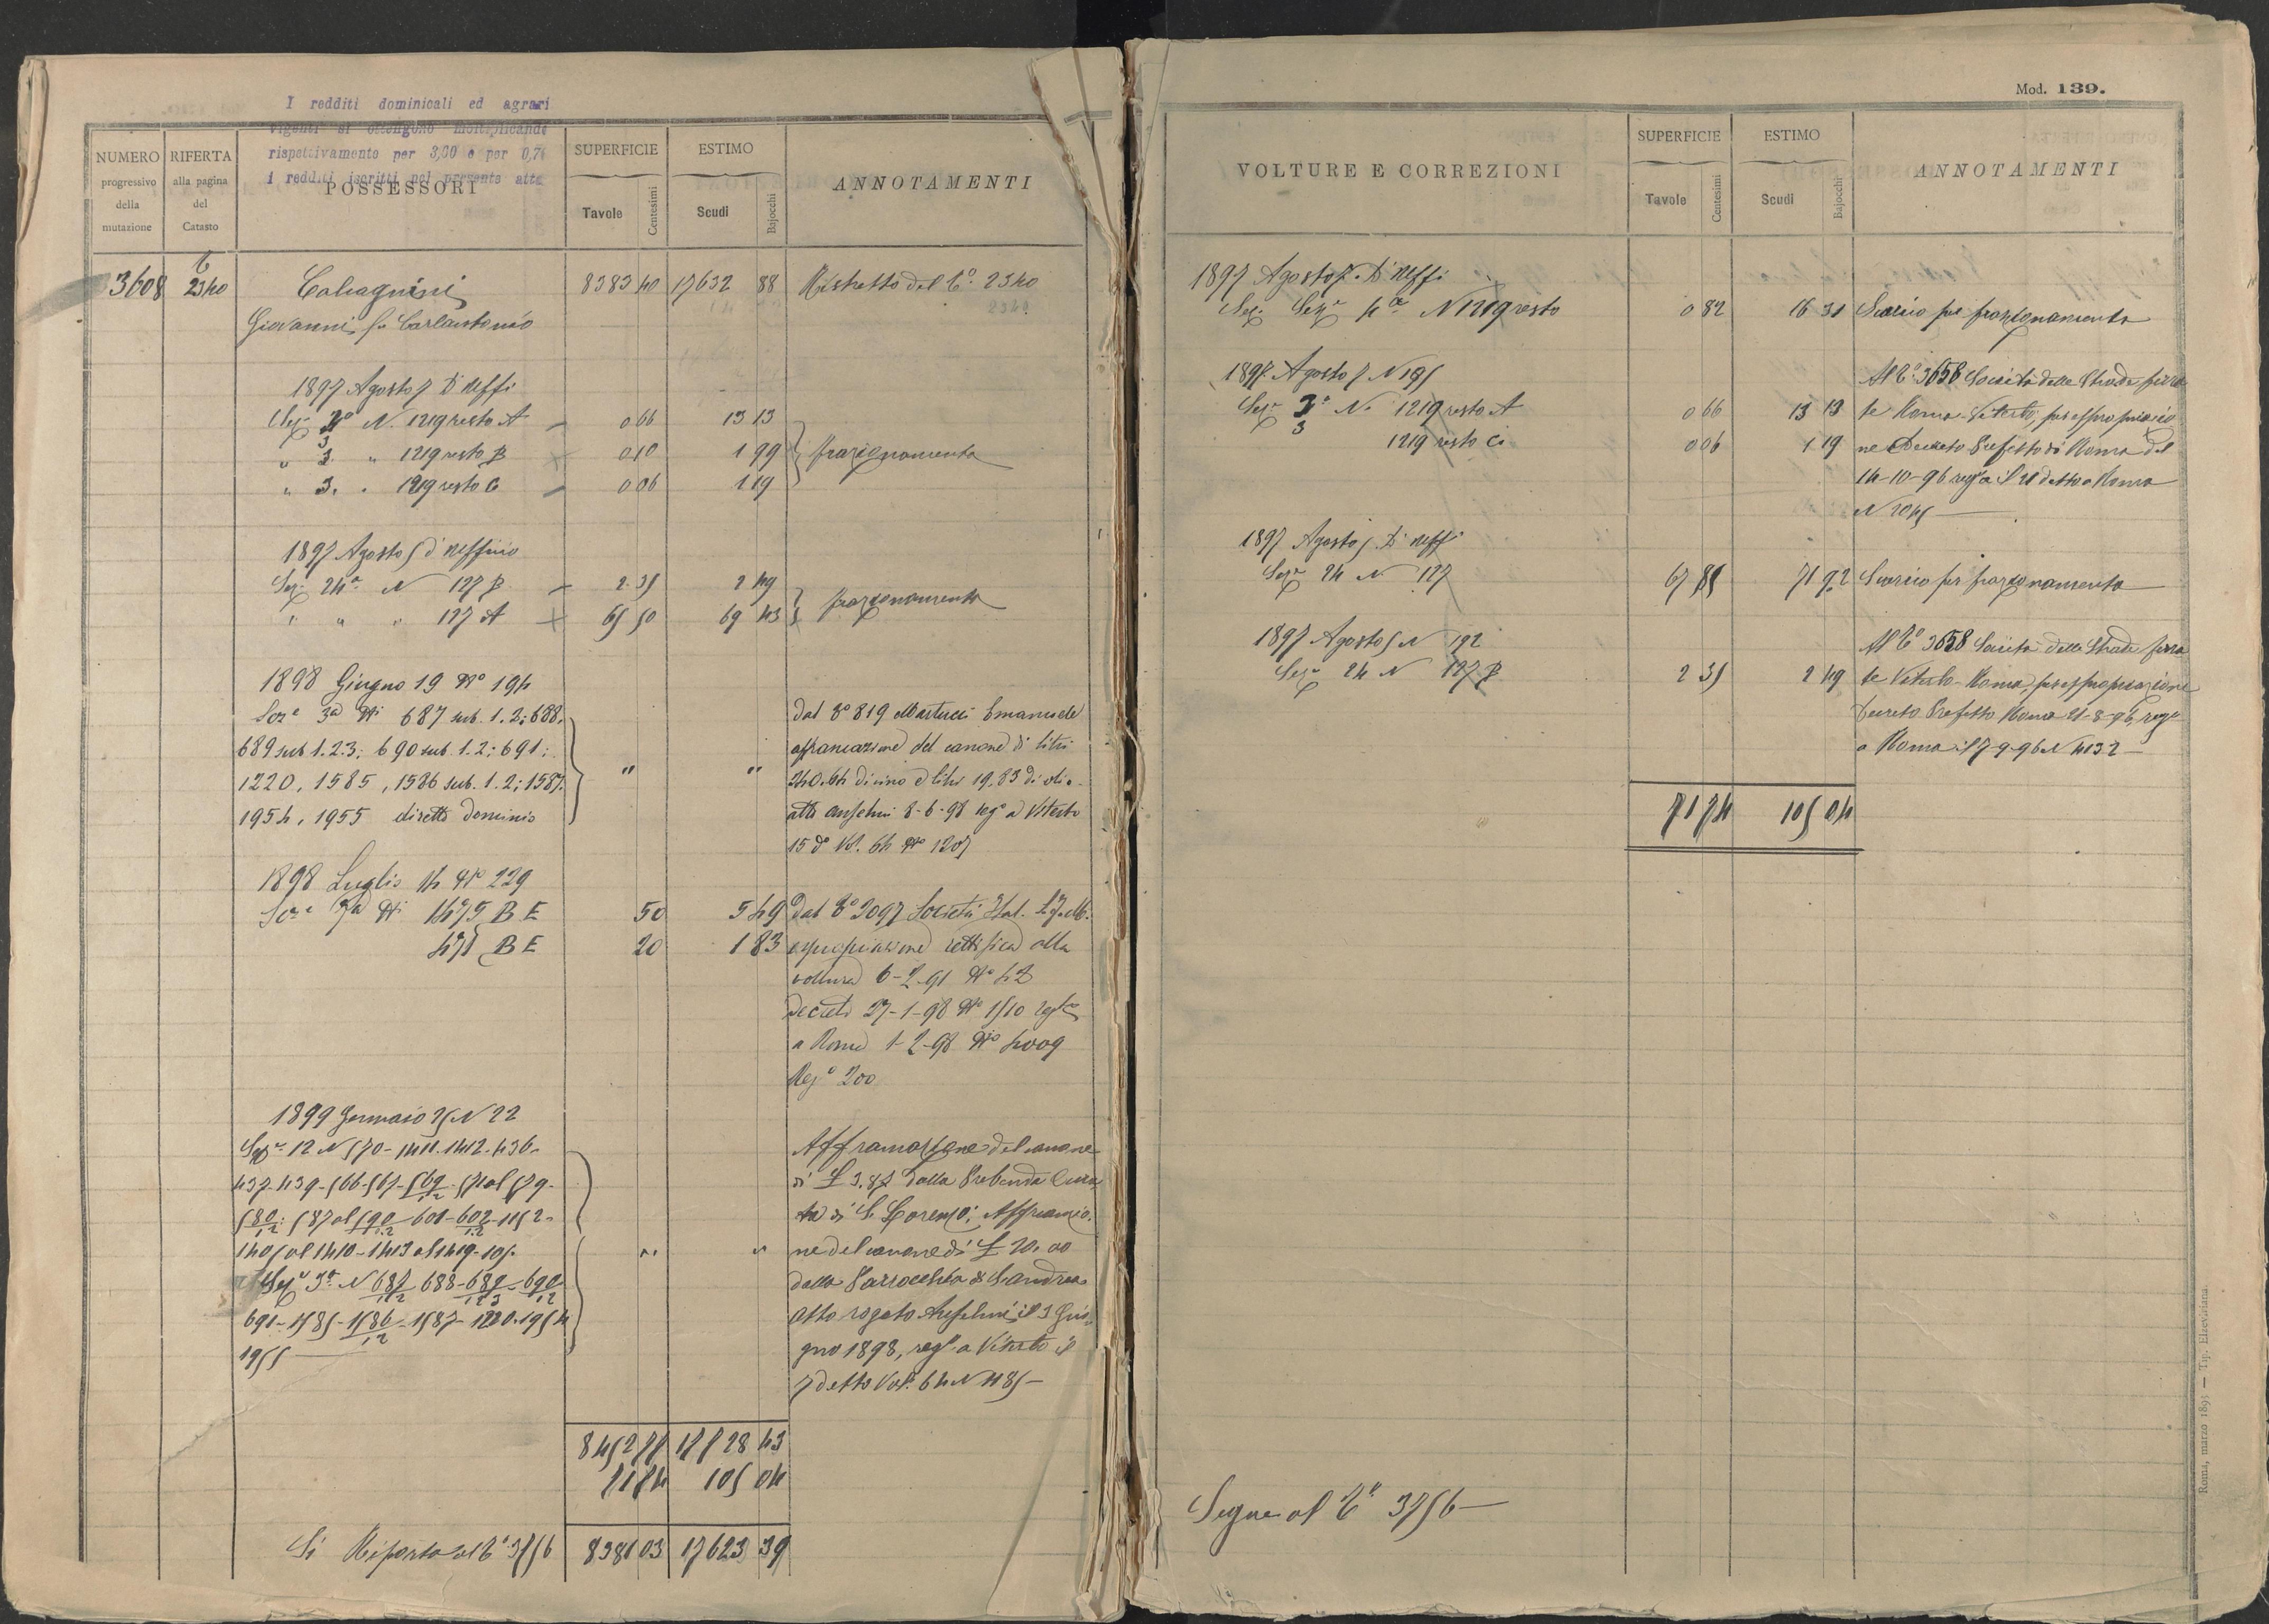 I redditi dominicali ed agrari
vigenti si ottengono moltiplicando
rispettivamente per 3,00 e per 0,7
i redditi iscritti nel presente atto
NUMERO progressivo della mutazione
RIFERTA alla pagina del Catasto
POSSESSORI
SUPERFICIE
Tavole Centesimi
ESTIMO
Scudi Bajocchi
ANNOTAMENTI
3608 2340 Calcagnini 8383 40 17632 88 Ristretto del C.º 2340
Giovanni fu Carlantonio
1897 Agosto 7 D'Uffi
Sez. 3ª N. 1219 resto A 0 66 13 13
" 3. " 1219 resto B 0 10 1 99 frazionamento
" 3. " 1219 resto C 0 06 1 19
1897 Agosto 5 d'Uffficio
Sez. 24ª N 127 B 2 35 2 49
" " " 127 A 65 50 69 43 frazionamento
1898 Giugno 19 Nº 194
Sezº 3ª Ni 687 sub. 1.2; 688. dal Cº 819 Martucci Emanuele
689 sub 1.2.3; 690 sub. 1.2; 691; affrancazione del canone di litri
1220, 1585, 1586 sub. 1.2; 1587. " " 240.64 di vino e litri 19.83 di olio
1954, 1955 diretto dominio atto Anselmi 8-6-98 regº a Viterbo
15 dº Vol. 64 Nº 1205
1898 Luglio 14 Nº 229
Sezº 7ª Ni 1475 B E 50 5 49 dal Cº 2097 Società Ital.
471 B E 20 1 83 espropriazione rettifica alla
voltura 6-2-91 Nº 42
decreto 27-1-98 Nº 1510 regto
a Roma 1-2-98 Nº 4009
Regº 200
1899 Gennaio 25 N 22
Sezº 12 N 570-1411.1412.436- Affrancazione del canone
437-439-566-567-569/1.2-571 al 579- di £ 3.87 dalla Prebenda Cura
580/1.2; 587 al 590/1.2-601-602/1.2-1152- ta di S. Lorenzo; Affrancazio
1405 al 1410-1413 al 1419-105. " " ne del canone di £ 20.00
Sezº 3ª N 687/1.2 688-689/1.2.3-690/1.2 dalla Parrocchia di S. Andrea
691-1585-1586/1.2-1587-1220.1954 Atto rogato Anselmi il 3 Giu
1955 gno 1898, regº a Viterbo il
7 detto Vol. 64 N 1185-
8452 77 17728 43
71 74 105 04
Si Riporta al Cº 3756 8381 03 17623 39
Mod. 139.
VOLTURE E CORREZIONI
SUPERFICIE
Tavole Centesimi
ESTIMO
Scudi Bajocchi
ANNOTAMENTI
1897 Agosto 7. D'Uffi
Sez. 3ª N 1219 resto 0 82 16 31 Scarico per frazionamento
1897. Agosto 7 N 195 Al Cº 3658 Società delle Strade ferra
Sezº 3ª N. 1219 resto A 0 66 13 13 te Roma-Viterbo, per espropriazio
3 1219 resto C 0 06 1 19 ne Decreto Prefetto di Roma del
14-10-96 regº a il 21 detto a Roma
N 2045
1897 Agosto 5 D'Uffi
Sezº 24 N 127 67 85 71 92 Scarico per frazionamento
1897 Agosto 5 N 192 Al Cº 3658 Società delle Strade ferra
Sezº 24 N 127 B 2 35 2 49 te Viterbo-Roma, per espropriazione
Decreto Prefetto Roma 21-8-96, regº
a Roma il 7-9-96 N 4132
71 74 105 04
Segue al Cº 3756
Roma, marzo 1895 — Tip. Elzeviriana.